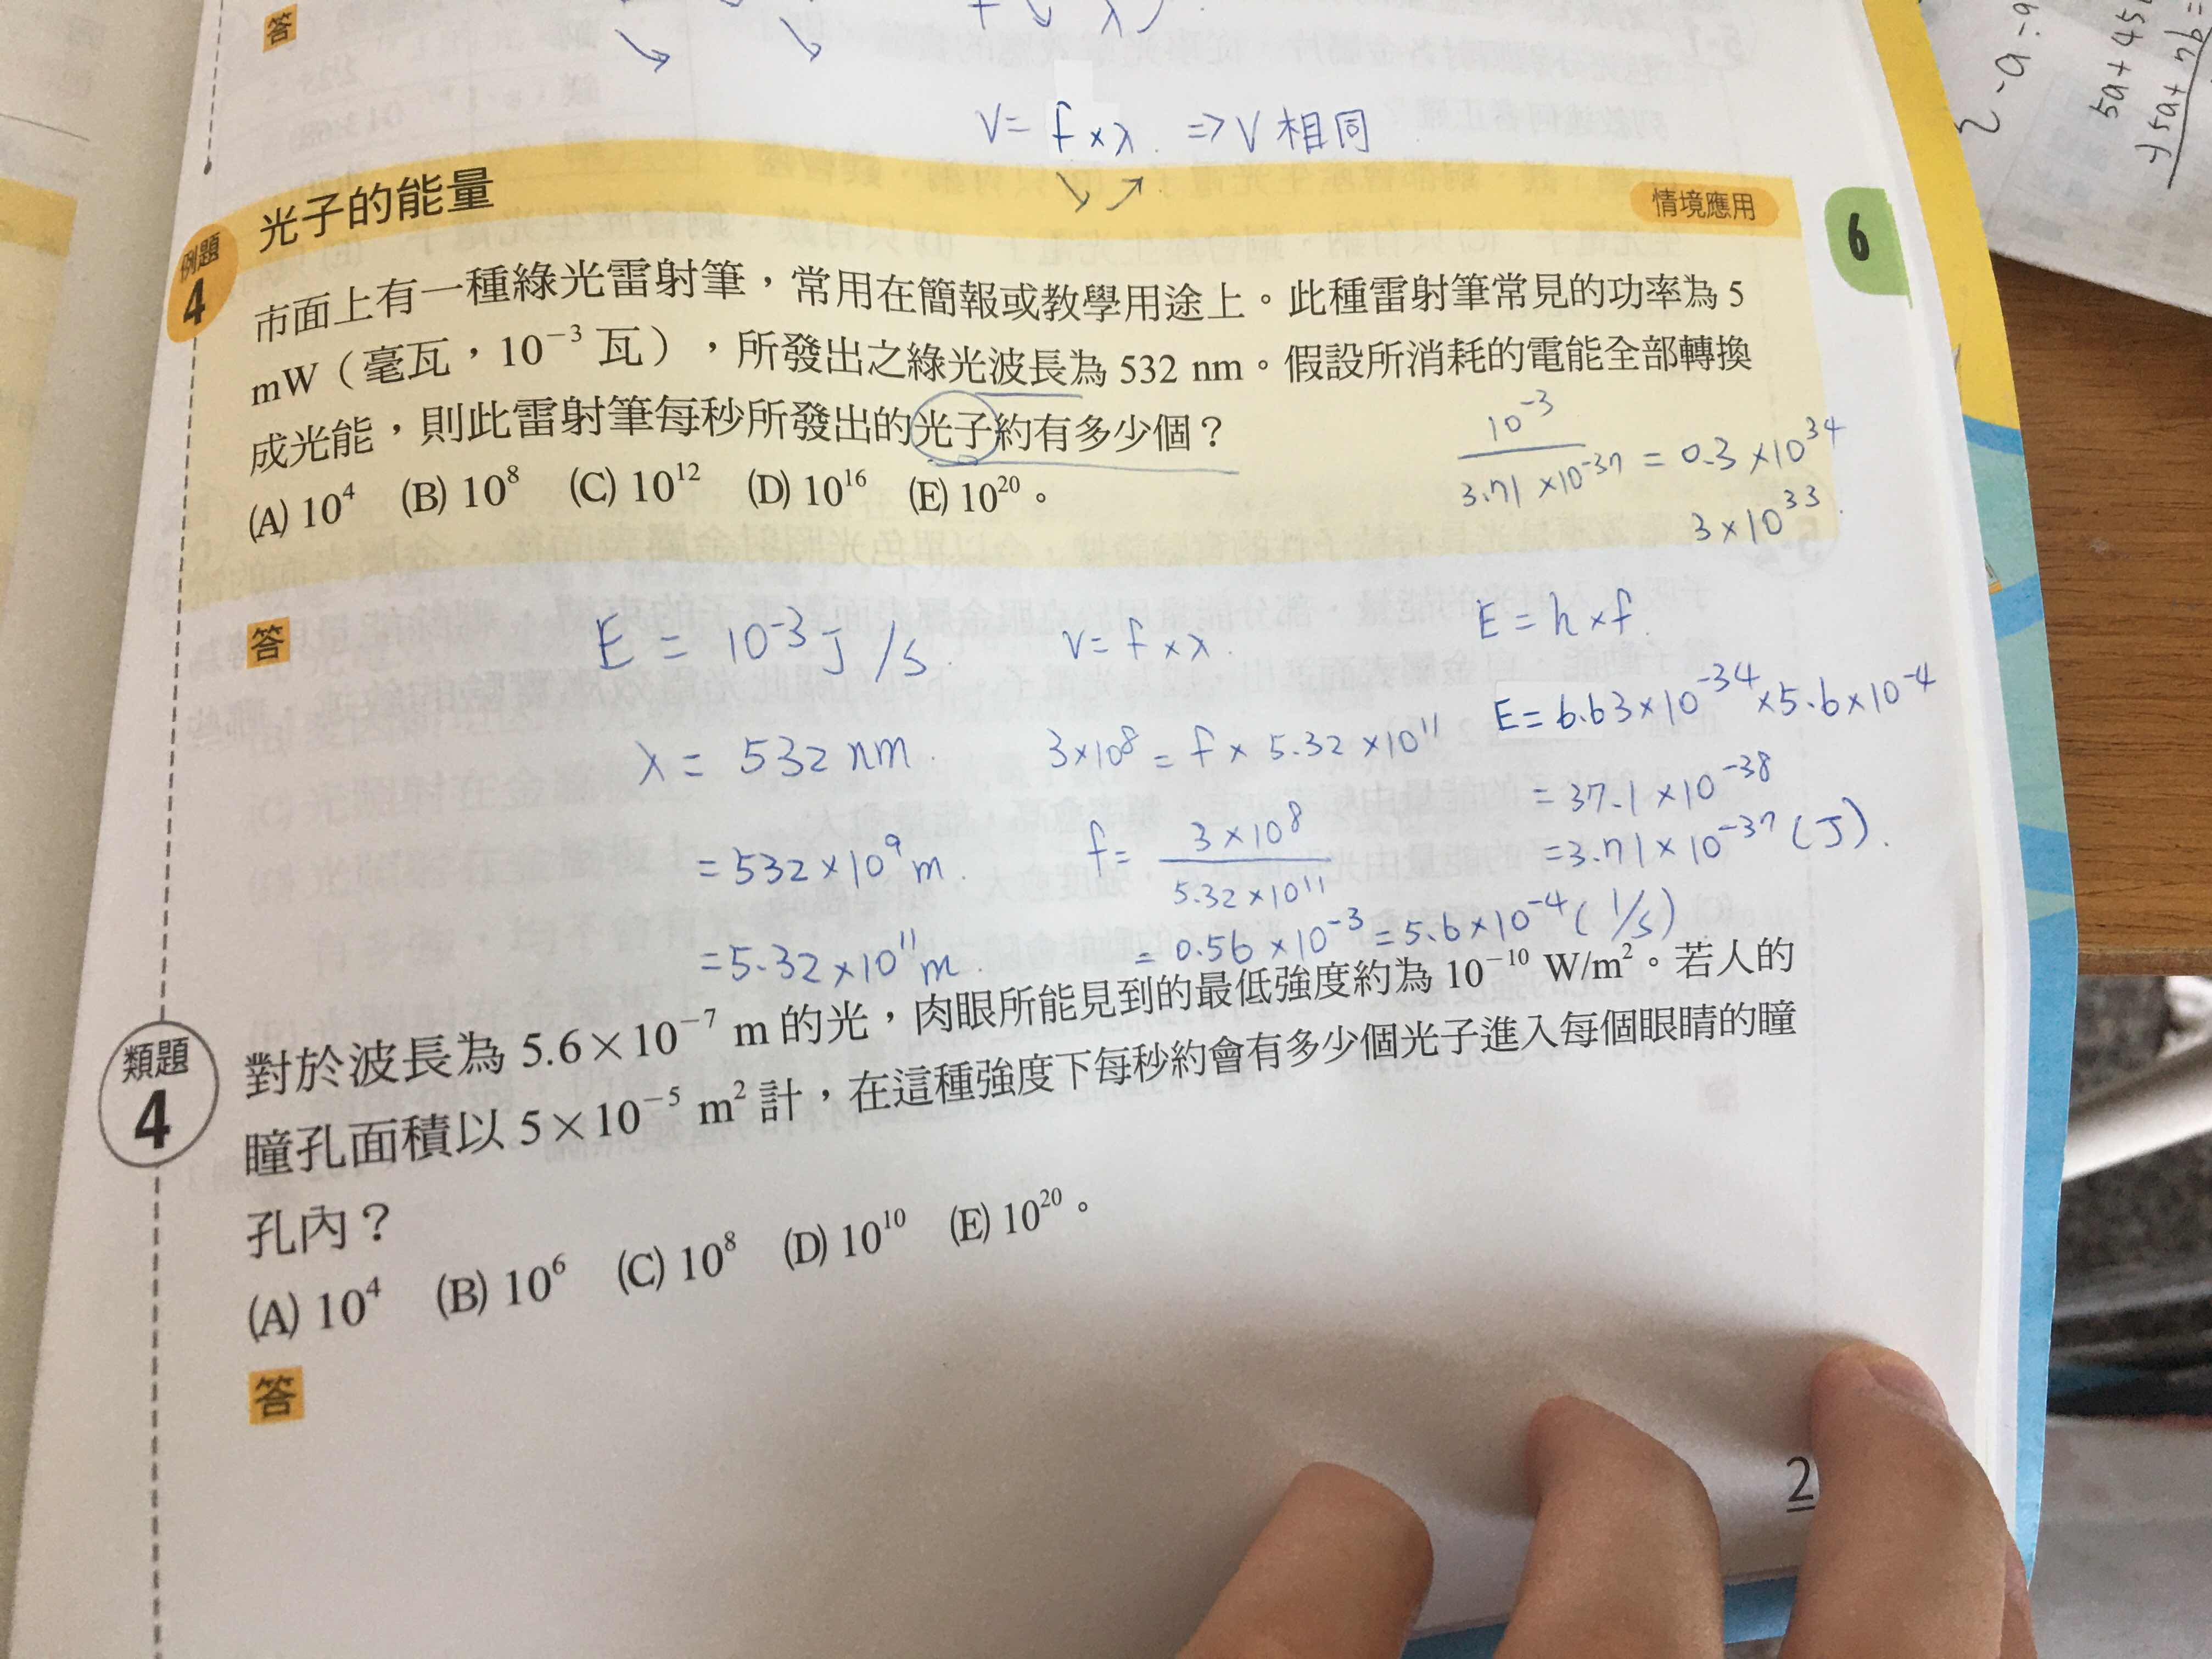 答
v = f × λ ⇒ v 相同
例題 4 光子的能量 情境應用
6
市面上有一種綠光雷射筆，常用在簡報或教學用途上。此種雷射筆常見的功率為 5
mW（毫瓦，10⁻³ 瓦），所發出之綠光波長為 532 nm。假設所消耗的電能全部轉換
成光能，則此雷射筆每秒所發出的光子約有多少個？
(A) 10⁴ (B) 10⁸ (C) 10¹² (D) 10¹⁶ (E) 10²⁰。
10⁻³ / 3.71 × 10⁻³⁷ = 0.3 × 10³⁴
3 × 10³³.
答
E = 10⁻³ J/s. v = f × λ. E = h × f.
λ = 532 nm. 3×10⁸ = f × 5.32 × 10¹¹ E = 6.63×10⁻³⁴ × 5.6 × 10⁻⁴
= 37.1 × 10⁻³⁸
= 532 × 10⁹ m. f = 3 × 10⁸ / 5.32 × 10¹¹ = 3.71 × 10⁻³⁷ (J).
= 5.32 × 10¹¹ m. = 0.56 × 10⁻³ = 5.6 × 10⁻⁴ (1/s)
類題 4
對於波長為 5.6×10⁻⁷ m 的光，肉眼所能見到的最低強度約為 10⁻¹⁰ W/m²。若人的
瞳孔面積以 5×10⁻⁵ m² 計，在這種強度下每秒約會有多少個光子進入每個眼睛的瞳
孔內？
(A) 10⁴ (B) 10⁶ (C) 10⁸ (D) 10¹⁰ (E) 10²⁰。
答
2